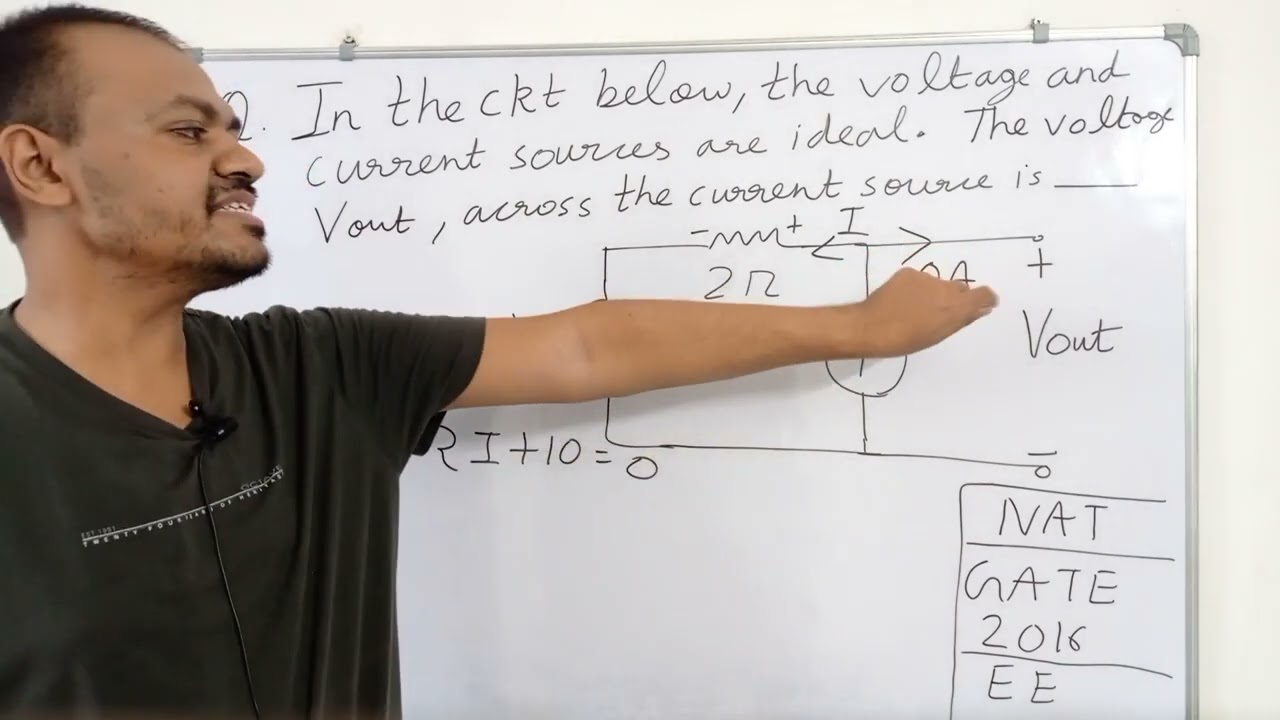 Q. In the ckt below, the voltage and
current sources are ideal. The voltage
Vout, across the current source is ____
- + I
2Ω 0A +
Vout
RI+10=0
-
NAT
GATE
2016
EE
EST.1991
TWENTY FOUR YEARS OF